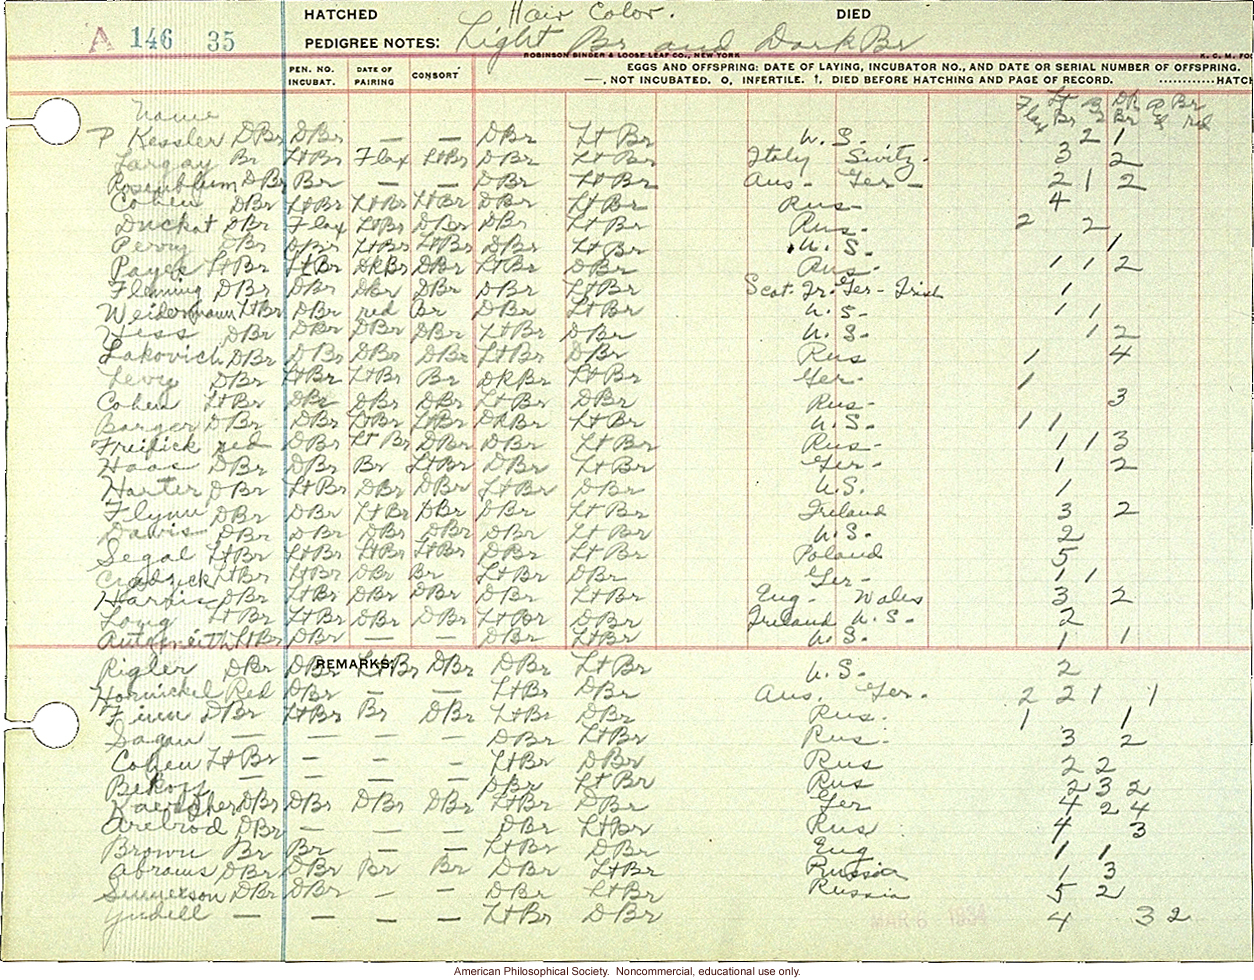 HATCHED Hair Color. DIED
A 146 35 PEDIGREE NOTES: Light Br and Dark Br
ROBINSON BINDER & LOOSE LEAF CO., NEW YORK
PEN. NO. INCUBAT. DATE OF PAIRING CONSORT EGGS AND OFFSPRING: DATE OF LAYING, INCUBATOR NO., AND DATE OR SERIAL NUMBER OF OFFSPRING.
—, NOT INCUBATED. O, INFERTILE. †, DIED BEFORE HATCHING AND PAGE OF RECORD. ............HATCH
Name Flax Lt Br Br DK Br Br rd
P Kessler DBr DBr — — DBr Lt Br U.S. 2 1
Largay Br LtBr Flax LtBr DBr LtBr Italy Switz. 3 2
Rosenbloum DBr Br — — DBr LtBr Aus - Ger - 2 1 2
Cohen DBr LtBr LtBr LtBr DBr LtBr Rus- 4
Duckat DBr Flax LtBr DBr DBr LtBr Rus- 2 2
Perry DBr DBr LtBr LtBr DBr LtBr U.S. 1
Payes LtBr LtBr DKBr DBr LtBr DBr Rus- 1 1 2
Fleming DBr DBr DBr DBr DBr LtBr Scot. Ir. Ger - Irish 1
Weidermann LtBr DBr red Br DBr LtBr U.S- 1 1
Hess DBr DBr DBr DBr LtBr DBr U.S. 1 2
Lakovich DBr DBr DBr DBr LtBr DBr Rus 1 4
Levy DBr LtBr LtBr Br DKBr LtBr Ger- 1
Cohen LtBr DBr DBr DBr LtBr DBr Rus- 3
Barger DBr DBr LtBr LtBr DKBr LtBr U.S- 1 1
Freifick red DBr Lt Br DBr DBr LtBr Rus- 1 1 3
Haas DBr DBr Br LtBr DBr LtBr Ger- 1 2
Harter DBr LtBr DBr DBr LtBr DBr U.S. 1
Flynn DBr DBr LtBr DBr DBr LtBr Ireland 3 2
Davis DBr DBr DBr DBr DBr LtBr U.S- 2
Segal LtBr LtBr LtBr LtBr DBr LtBr Poland 5
LtBr LtBr DBr Br LtBr DBr Ger- 1 1
Harris DBr LtBr DBr DBr DBr LtBr Eng - Wales 3 2
Long LtBr LtBr DBr DBr LtBr DBr Ireland U.S- 2
LtBr DBr — — DBr LtBr U.S. 1 1
REMARKS:
Rigler DBr DBr LtBr DBr DBr LtBr U.S- 2
Hornickel Red DBr — — LtBr DBr Aus. Ger. 2 2 1 1
Finn DBr LtBr Br DBr LtBr DBr Rus. 1 1
Sagan — — — — DBr LtBr Rus- 3 2
Cohen LtBr — — — LtBr DBr Rus 2 2
Bekoff — — — — DBr LtBr Rus 2 3 2
DBr DBr DBr DBr LtBr DBr Ger 4 2 4
Arelrod DBr — — — DBr LtBr Rus 4 3
Brown Br Br — — LtBr DBr Eng 1 1
Abrams DBr DBr Br Br DBr LtBr Russia 1 3
DBr DBr — — DBr LtBr Russia 5 2
Yudell — — — — LtBr DBr 4 3 2
American Philosophical Society. Noncommercial, educational use only.